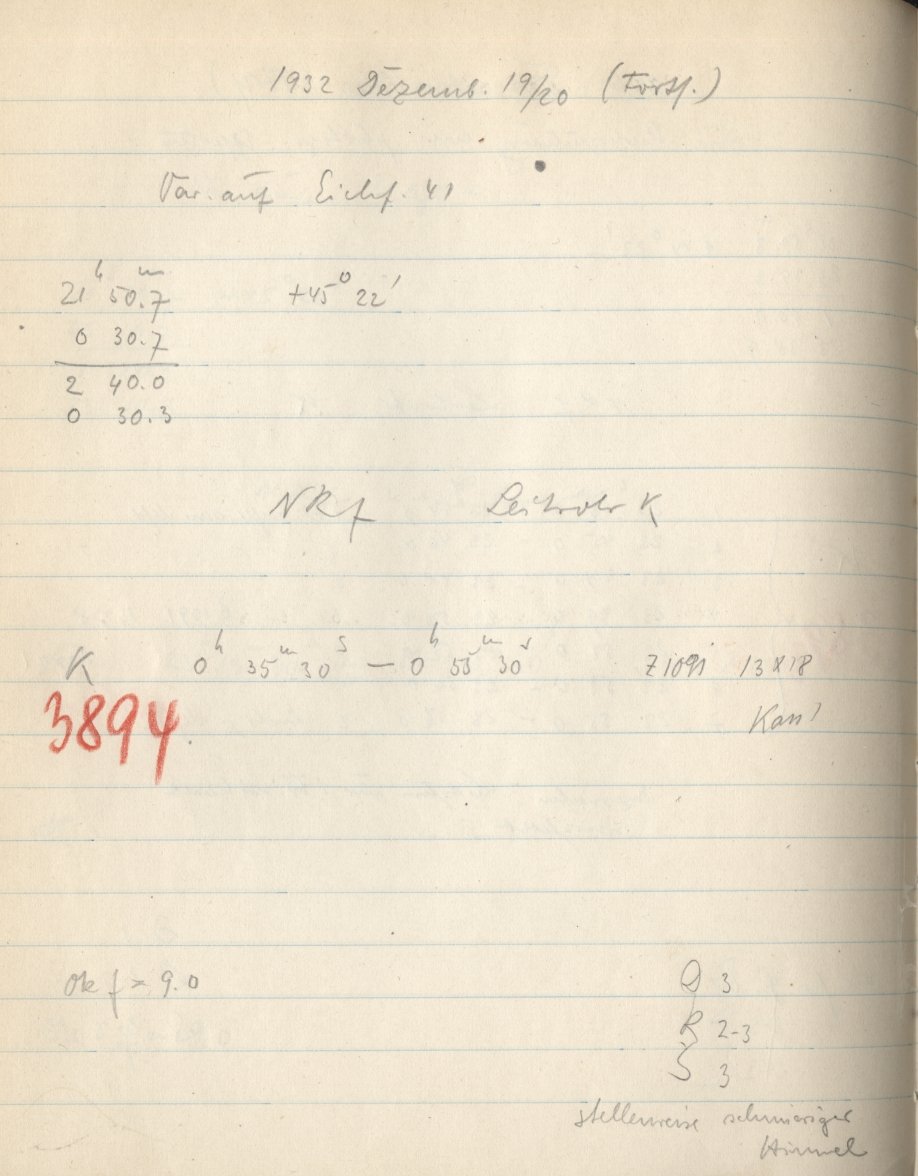 1932 Dezemb. 19/20 (Forts.)
Var. auf Eichf. 41
21ʰ 50.7ᵐ +45° 22'
0 30.7
2 40.0
0 30.3
NRf Leitrohr K
K 0ʰ 35ᵐ 30ˢ — 0ʰ 55ᵐ 30ˢ 13 x 18
3894
Ok f = 9.0
Q 3
R 2-3
S 3
stellenweise schmieriger
Himmel